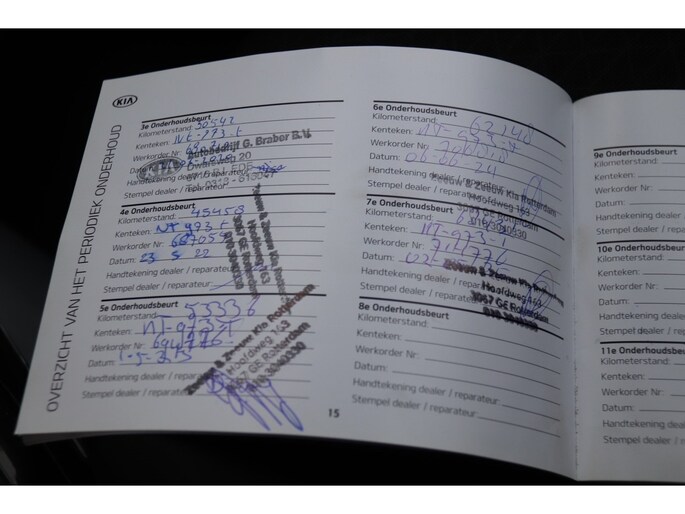 KIA
OVERZICHT VAN HET PERIODIEK ONDERHOUD
3e Onderhoudsbeurt
Kilometerstand: 30542
Kenteken: NT-973-T
Werkorder Nr:
Datum:
Handtekening dealer / reparateur:
Stempel dealer / reparateur:
Autobedrijf G. Braber B.V.
Dwarsweg 20
4e Onderhoudsbeurt
Kilometerstand: 45458
Kenteken: NT 973-T
Werkorder Nr: 667055
Datum: 23 5 22
Handtekening dealer / reparateur:
Stempel dealer / reparateur:
Zeeuw & Zeeuw Kia Rotterdam
Hoofdweg 163
3067 GE Rotterdam
010 3040330
5e Onderhoudsbeurt
Kilometerstand: 53336
Kenteken: NT-973-T
Werkorder Nr: 694776
Datum: 1-5-23
Handtekening dealer / reparateur:
Stempel dealer / reparateur:
Zeeuw & Zeeuw Kia Rotterdam
Hoofdweg 163
3067 GE Rotterdam
010 3040330
15
6e Onderhoudsbeurt
Kilometerstand: 62140
Kenteken: NT-973-T
Werkorder Nr:
Datum: 06-06-24
Handtekening dealer / reparateur:
Stempel dealer / reparateur:
Zeeuw & Zeeuw Kia Rotterdam
Hoofdweg 163
3067 GE Rotterdam
010 3040330
7e Onderhoudsbeurt
Kilometerstand:
Kenteken: NT-973-T
Werkorder Nr: 714776
Datum:
Handtekening dealer / reparateur:
Stempel dealer / reparateur:
Zeeuw & Zeeuw Kia Rotterdam
Hoofdweg 163
3067 GE Rotterdam
010 3040330
8e Onderhoudsbeurt
Kilometerstand:
Kenteken:
Werkorder Nr:
Datum:
Handtekening dealer / reparateur:
Stempel dealer / reparateur:
9e Onderhoudsbeurt
Kilometerstand:
Kenteken:
Werkorder Nr:
Datum:
Handtekening dealer
Stempel dealer / repar
10e Onderhoudsbeurt
Kilometerstand:
Kenteken:
Werkorder Nr:
Datum:
Handtekening dealer /
Stempel dealer / repara
11e Onderhoudsbeurt
Kilometerstand:
Kenteken:
Werkorder Nr:
Datum:
Handtekening dealer / r
Stempel dealer / reparat